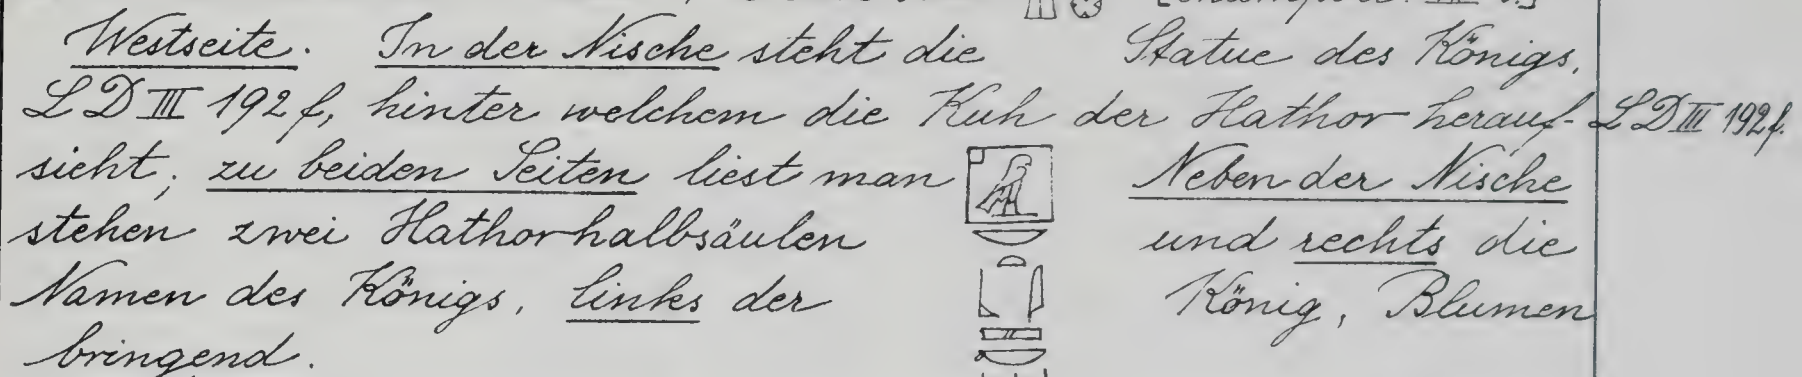 Westseite. In der Nische steht die Statue des Königs,
LD III 192 f, hinter welchem die Kuh der Hathor herauf- LD III 192 f.
sieht; zu beiden Seiten liest man Neben der Nische
stehen zwei Hathorhalbsäulen und rechts die
Namen des Königs, links der König, Blumen
bringend.